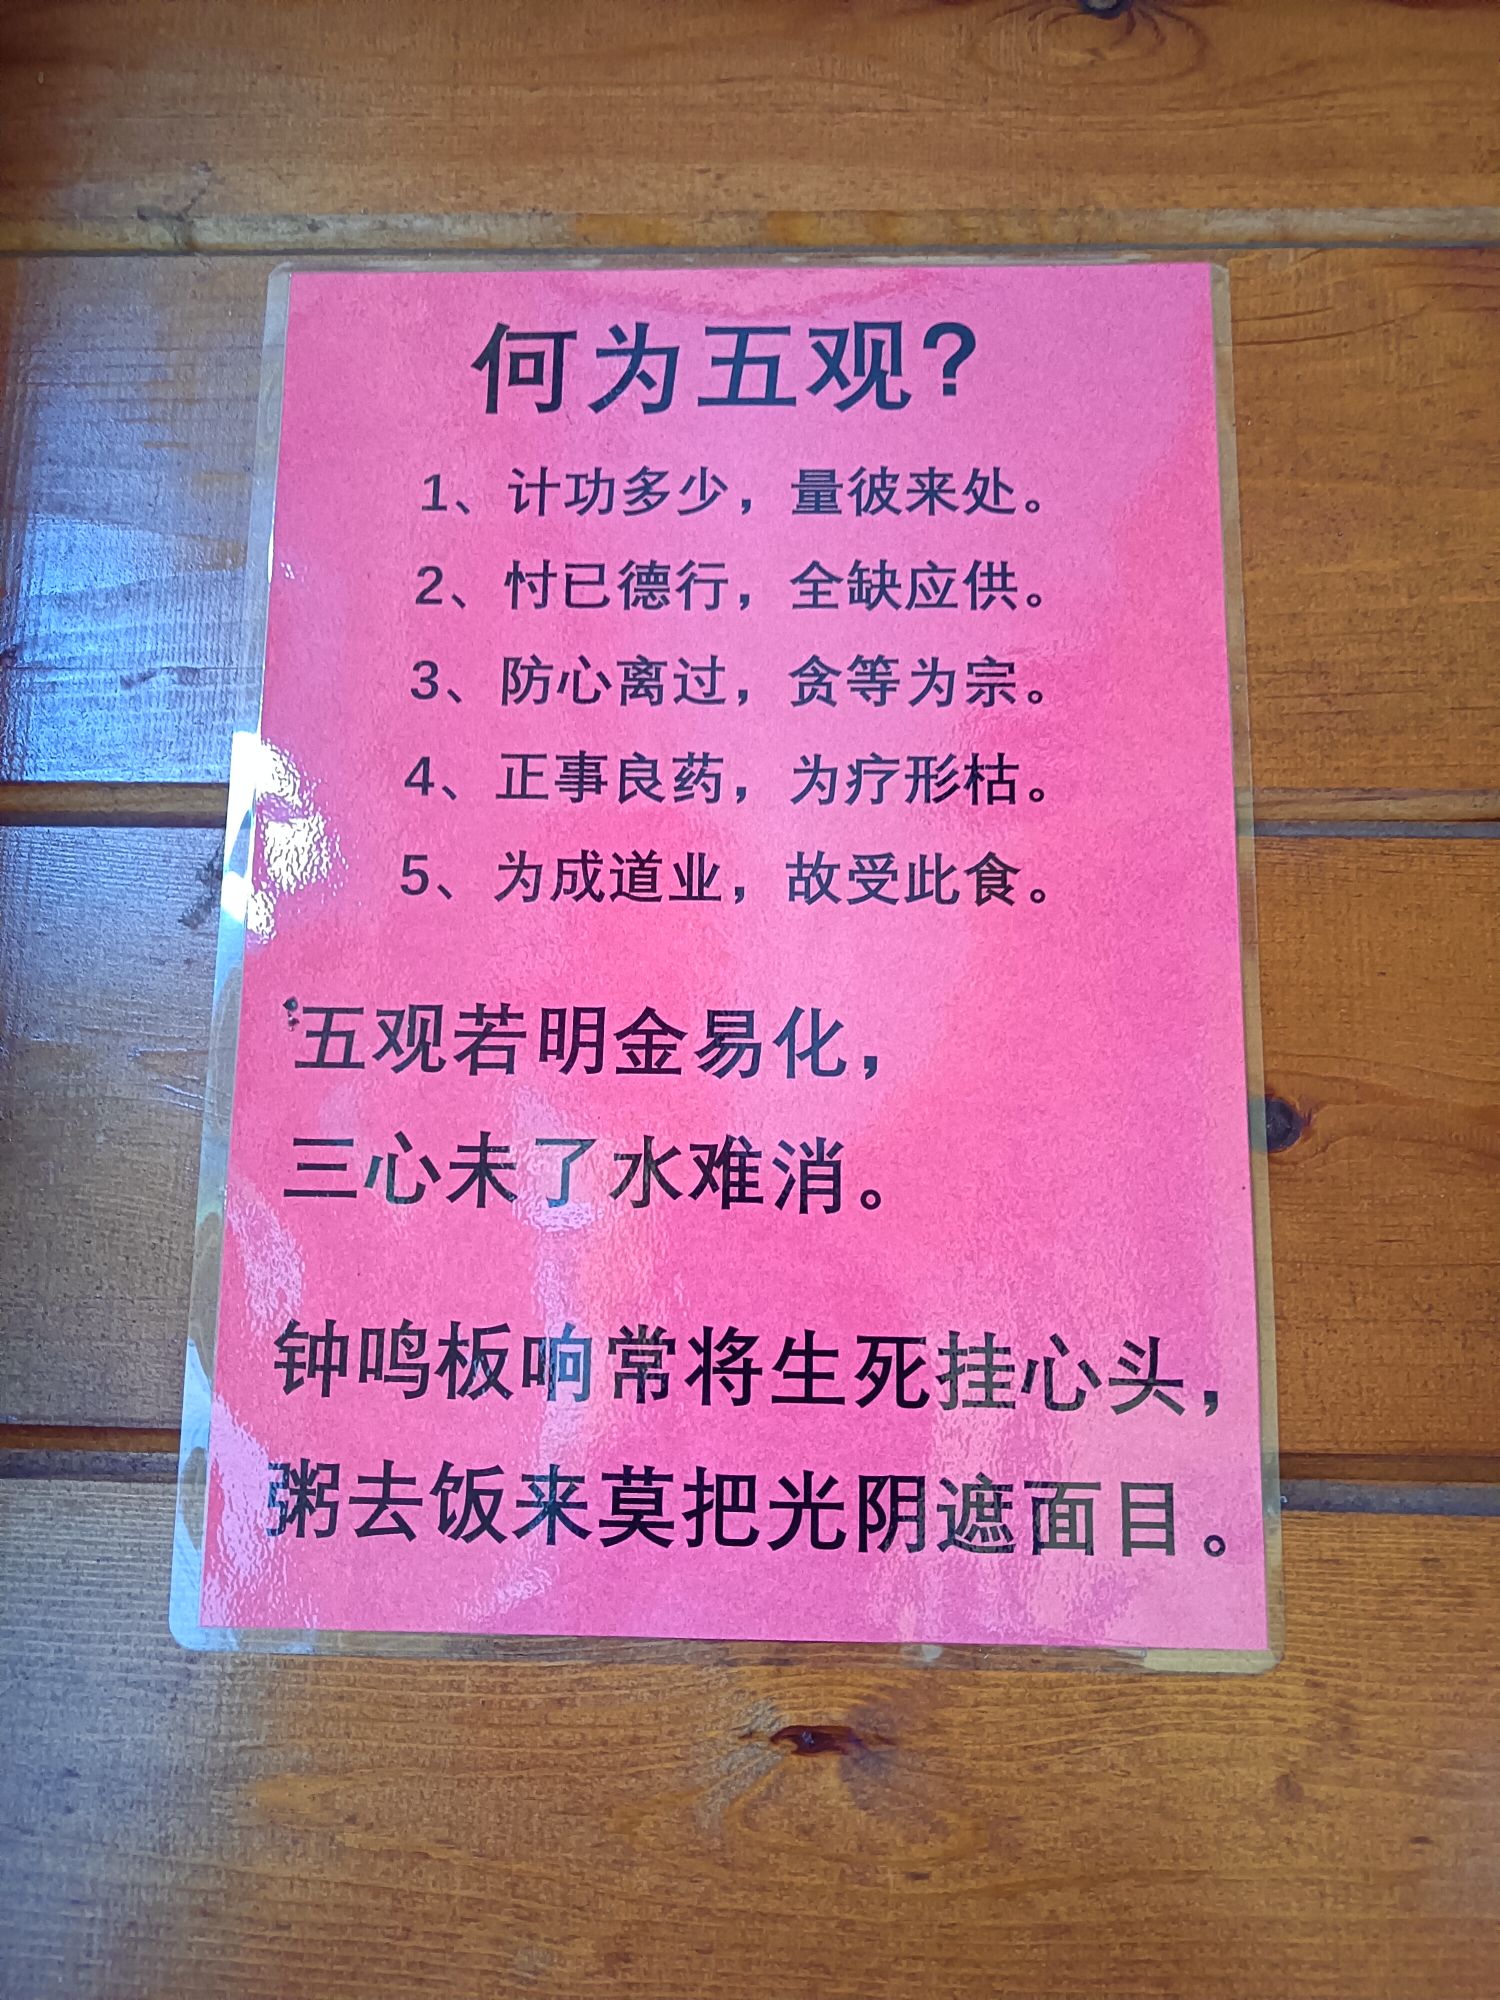 何为五观?
1、计功多少，量彼来处。
2、忖已德行，全缺应供。
3、防心离过，贪等为宗。
4、正事良药，为疗形枯。
5、为成道业，故受此食。
五观若明金易化，
三心未了水难消。
钟鸣板响常将生死挂心头，
粥去饭来莫把光阴遮面目。